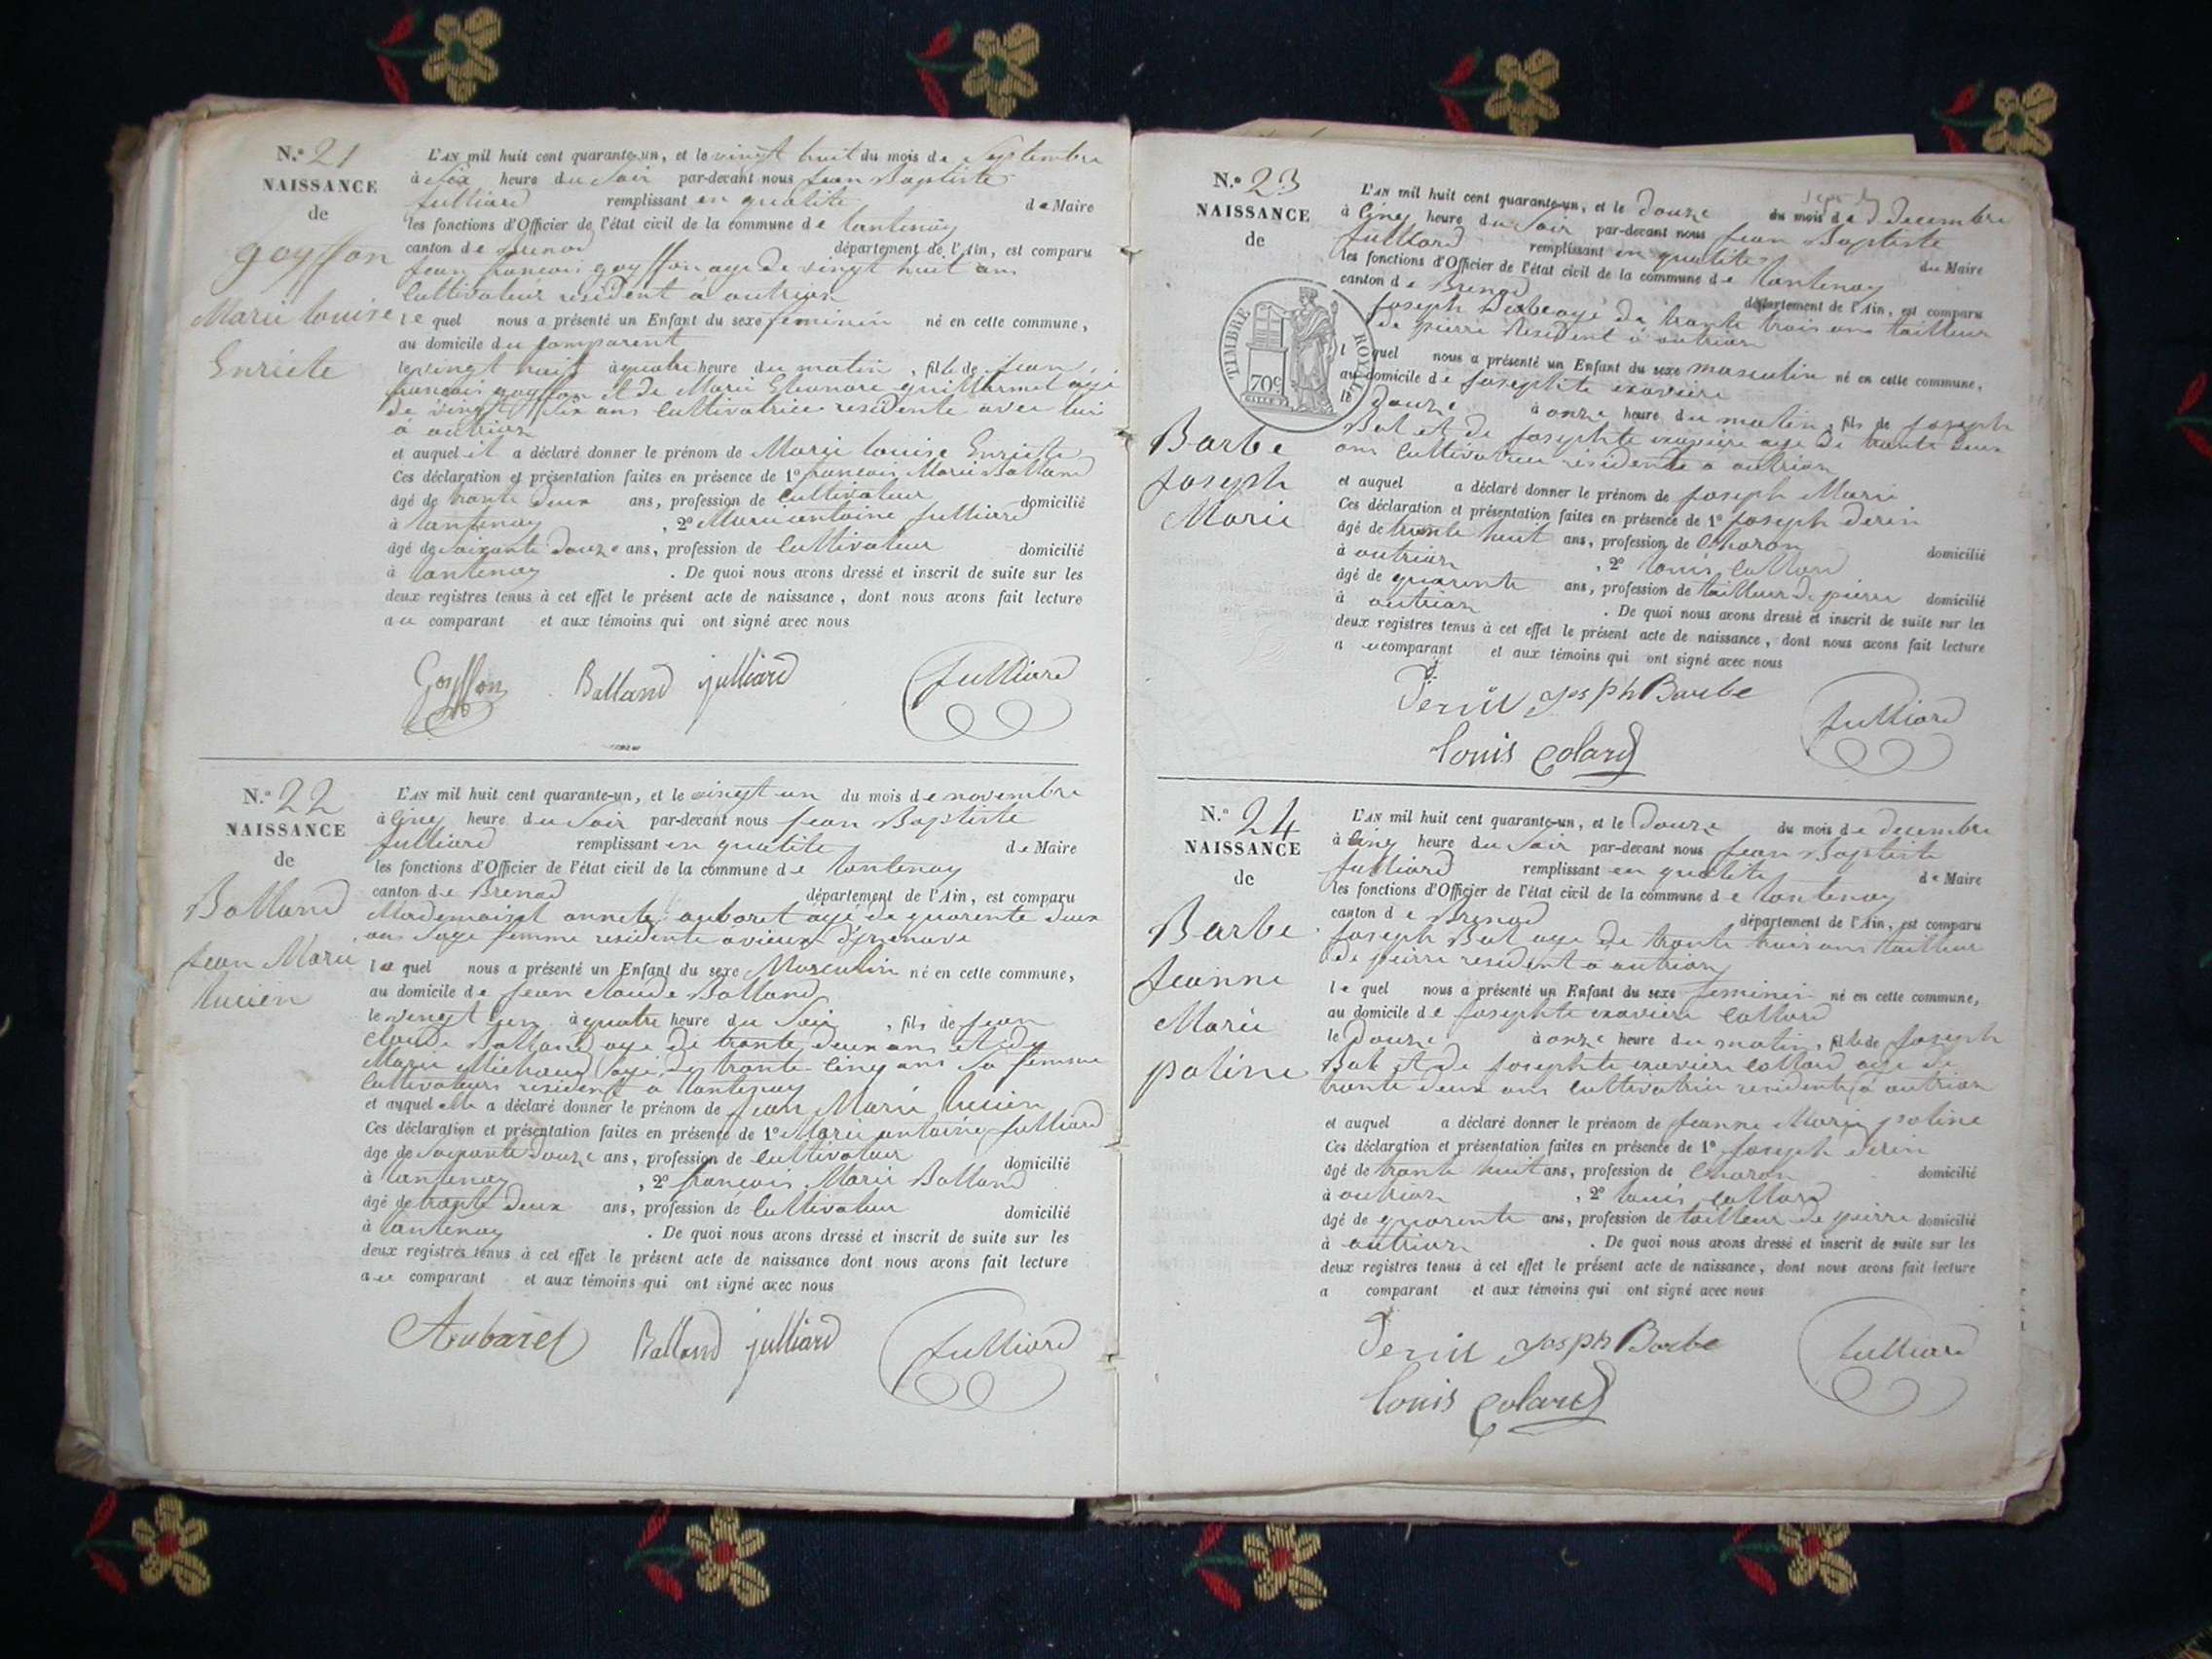 N.º 21
NAISSANCE
de
goyffon
Marie louise
Enriete
L'AN mil huit cent quarante-un, et le vingt huit du mois de Septembre
à Six heure du Soir par-devant nous jean Baptiste
julliard remplissant en qualité de Maire
les fonctions d'Officier de l'état civil de la commune de lantenay
canton de Brenod département de l'Ain, est comparu
jean françois goyffon age de vingt huit ans
Cultivateur resident a outriaz
le quel nous a présenté un Enfant du sexe feminin né en cette commune,
au domicile du comparent
le vingt huit à quatre heure du matin, fille de jean
françois goyffon et de Marie Eleonore guillermet agé
de vingt Six ans Cultivatrice residente avec lui
a outriaz
et auquel il a déclaré donner le prénom de Marie louise Enriete
Ces déclaration et présentation faites en présence de 1º françois Marie Balland
âgé de trante deux ans, profession de Cultivateur domicilié
à lantenay, 2º Marie antoine julliard
âgé de Soixante douze ans, profession de Cultivateur domicilié
à lantenay. De quoi nous avons dressé et inscrit de suite sur les
deux registres tenus à cet effet le présent acte de naissance, dont nous avons fait lecture
au comparant et aux témoins qui ont signé avec nous
Goyffon Balland julliard julliard
N.º 22
NAISSANCE
de
Balland
jean Marie
lucien
L'AN mil huit cent quarante-un, et le vingt un du mois de novembre
à Cinq heure du Soir par-devant nous jean Baptiste
julliard remplissant en qualité de Maire
les fonctions d'Officier de l'état civil de la commune de lantenay
canton de Brenod département de l'Ain, est comparu
annete aubaret agé de quarente deux
ans Sage femme residente a vieux d'izenave
la quel nous a présenté un Enfant du sexe Masculin né en cette commune,
au domicile de jean claude Balland
le vingt un à quatre heure du Soir, fils de jean
Claude Balland age de trante deux ans et de
Marie Michaud agé de trante Cinq ans Sa femme
Cultivateurs resident a lantenay
et auquel elle a déclaré donner le prénom de jean Marie lucien
Ces déclaration et présentation faites en présence de 1º Marie antoine julliard
âgé de Soixante douze ans, profession de Cultivateur domicilié
à lantenay, 2º françois Marie Balland
âgé de trante deux ans, profession de Cultivateur domicilié
à lantenay. De quoi nous avons dressé et inscrit de suite sur les
deux registres tenus à cet effet le présent acte de naissance dont nous avons fait lecture
au comparant et aux témoins qui ont signé avec nous
Aubarel Balland julliard julliard
N.º 23
NAISSANCE
de
TIMBRE ROYAL
70c
Barbe
joseph
Marie
L'AN mil huit cent quarante-un, et le douze du mois de decembre
à Cinq heure du Soir par-devant nous jean Baptiste
julliard remplissant en qualité du Maire
les fonctions d'Officier de l'état civil de la commune de lantenay
canton de Brenod département de l'Ain, est comparu
joseph Barbe agé de trante trois ans tailleur
de pierre resident a outriaz
l quel nous a présenté un Enfant du sexe masculin né en cette commune,
au domicile de josephte exaviere
le douze à onze heure du matin, fils de joseph
Bab et de josephte exaviere age de trante deux
ans Cultivatrice residente a outriaz
et auquel a déclaré donner le prénom de joseph Marie
Ces déclaration et présentation faites en présence de 1º joseph derin
âgé de trante huit ans, profession de Charon domicilié
à outriaz, 2º louis Collard
âgé de quarente ans, profession de tailleur de pierre domicilié
à outriaz. De quoi nous avons dressé et inscrit de suite sur les
deux registres tenus à cet effet le présent acte de naissance, dont nous avons fait lecture
au comparant et aux témoins qui ont signé avec nous
joseph Barbe
louis Colard julliard
N.º 24
NAISSANCE
de
Barbe
jeanne
Marie
poline
L'AN mil huit cent quarante-un, et le douze du mois de decembre
à Cinq heure du Soir par-devant nous jean Baptiste
julliard remplissant en qualité de Maire
les fonctions d'Officier de l'état civil de la commune de lantenay
canton de Brenod département de l'Ain, est comparu
joseph Bab age de trante trois ans tailleur
de pierre resident a outriaz
le quel nous a présenté un Enfant du sexe feminin né en cette commune,
au domicile de josephte exaviere Collard
le douze à onze heure du matin, fille de joseph
Bab et de josephte exaviere Collard age de
trante deux ans Cultivatrice residente a outriaz
et auquel a déclaré donner le prénom de jeanne Marie poline
Ces déclaration et présentation faites en présence de 1º joseph derin
âgé de trante huit ans, profession de Charon domicilié
à outriaz, 2º louis Collard
âgé de quarente ans, profession de tailleur de pierre domicilié
à outriaz. De quoi nous avons dressé et inscrit de suite sur les
deux registres tenus à cet effet le présent acte de naissance, dont nous avons fait lecture
a comparant et aux témoins qui ont signé avec nous
joseph Barbe
louis Colard julliard